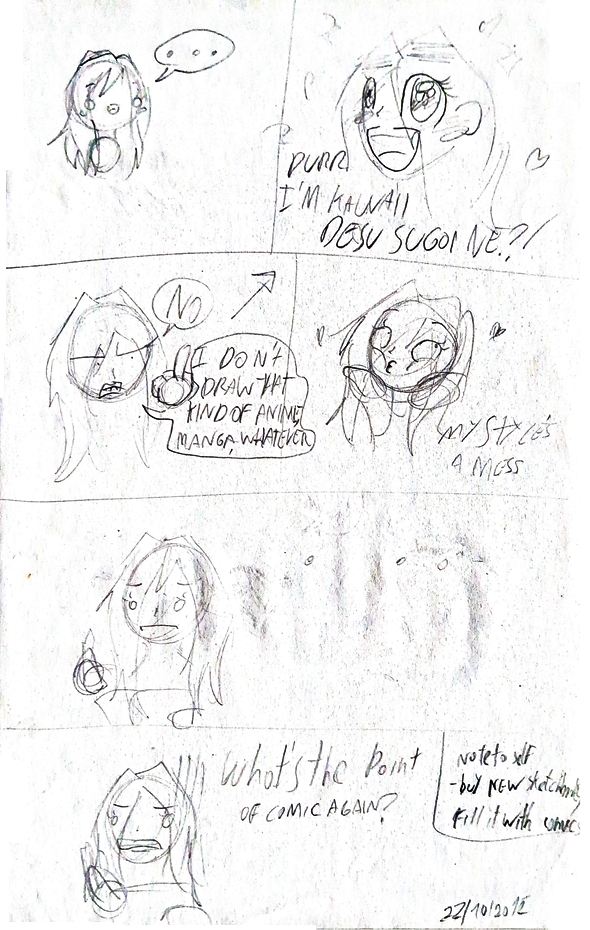 ...
DURR
I'M KAWAII
DESU SUGOI NE?!
NO
I DON'T
DRAW THAT
KIND OF ANIME,
MANGA, WHATEVER
MY STYLE'S
A MESS
What's the Point
OF COMIC AGAIN?
note to self
-buy NEW sketchbook
Fill it with comics
22/10/2012